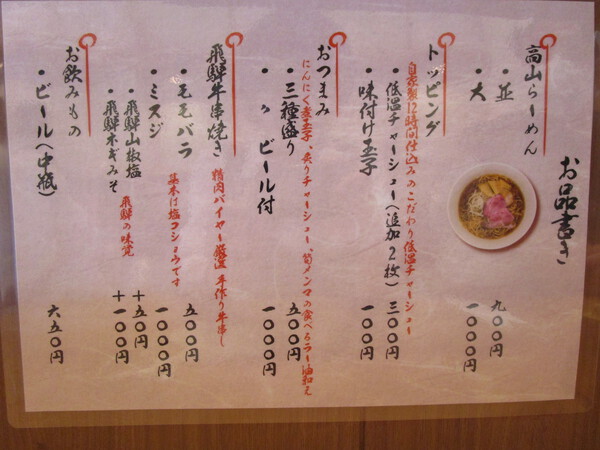 お品書き
高山らーめん
・並 九〇〇円
・大 一〇〇〇円
トッピング
自家製12時間仕込みのこだわり低温チャーシュー
・低温チャーシュー(追加2枚) 三〇〇円
・味付け玉子 一〇〇円
おつまみ
にんにく煮玉子、炙りチャーシュー、筍メンマの食べるラー油和え
・三種盛り 五〇〇円
・〃 ビール付 一〇〇〇円
飛騨牛串焼き
精肉バイヤー厳選 手作り牛串し
・モモバラ 五〇〇円
・ミスジ 一〇〇〇円
基本は塩コショウです
・飛騨山椒塩 +五〇円
・飛騨ネギみそ +一〇〇円
飛騨の味覚
お飲みもの
・ビール(中瓶) 六五〇円